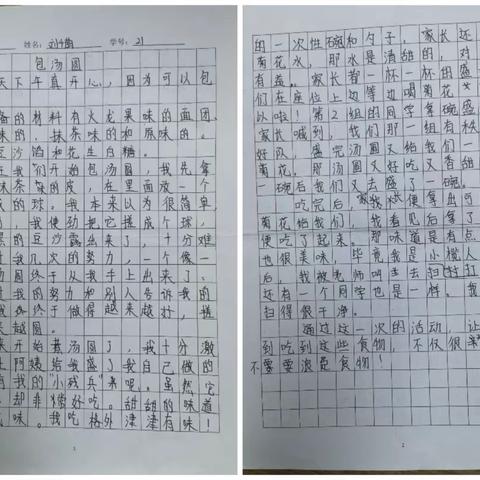 姓名：刘 学号：21
包汤圆
天下午真开心，因为可以包
备的材料有火龙果味的面团，
味的、抹茶味的和原味的。
豆沙馅和花生白糖。
我们开始包汤圆，我先拿
抹茶馅的皮，在里面放一个
成的球。我本来以为很简单，
我使劲把它搓成个球，
黑的豆沙露出来了，十分难
过我几次的努力，一个像一
汤圆终于从我手上出来了、
过我的努力和别人告诉我的
我终于做得越来越好，搓
来越圆。
来开始煮汤圆了，我十分激
阿姨给我盛入我自己做的
有我的“小残兵”来呢。虽然它
却非常好吃。甜甜的味道
味。我吃格外津津有味！
1
的一次性碗和勺子，家长还
菊花水，那水是清甜的，对
有益。家长者一杯一杯的盛
们在座位上边等边喝菊花
以啦！第2组的同学拿碗盛
家长喊到，我们那一组有秩
好队，盛完汤圆又给我们一
菊花。那汤圆又好吃又香甜
一碗后我们又去盛了一碗。
吃完后，家长便拿出可
菊花给我们，我看见后拿了
便吃了起来。那味道是有点
也很美味！毕竟我是小榄人
后，我被老师叫去扫打
还有一个同学也是一样。我
扫得很干净。
通过这一次的活动，让
到吃到这些食物，不仅很
不要浪费食物！
2